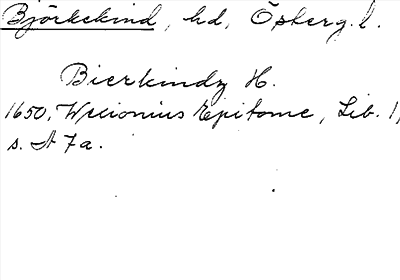 Björkekind, hd, Östergl.
Bierkindz H.
1650, Wexionius Epitome, Lib. 1,
s. A 7a.